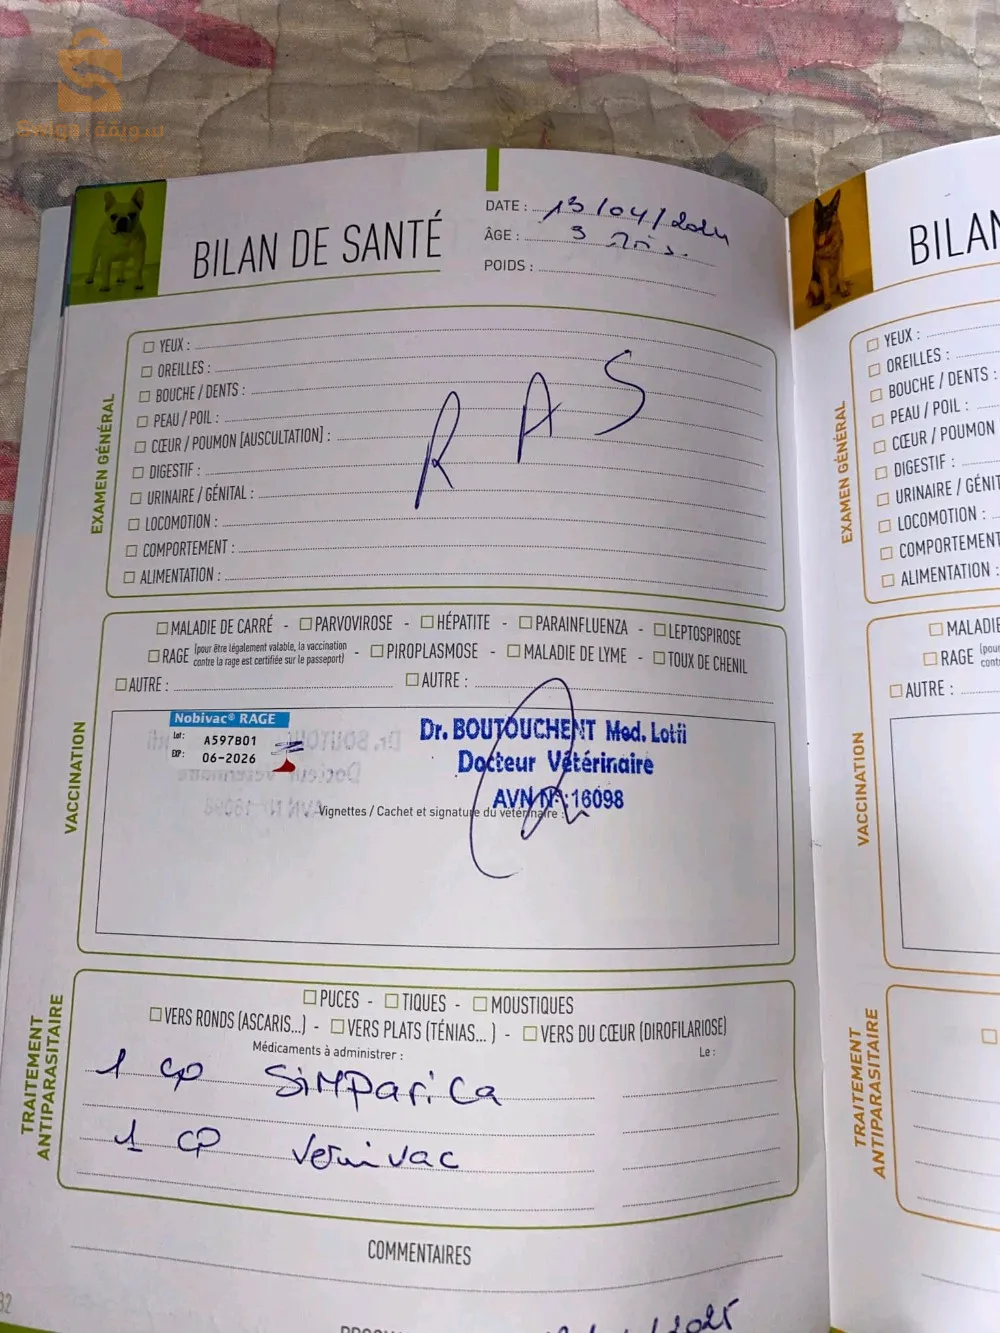 Swiga سويقة
BILAN DE SANTÉ
DATE : 13/04/2024
ÂGE : 3
POIDS :
EXAMEN GÉNÉRAL
YEUX :
OREILLES :
BOUCHE / DENTS :
PEAU / POIL :
CŒUR / POUMON [AUSCULTATION] :
DIGESTIF :
URINAIRE / GÉNITAL :
LOCOMOTION :
COMPORTEMENT :
ALIMENTATION :
RAS
VACCINATION
MALADIE DE CARRÉ - PARVOVIROSE - HÉPATITE - PARAINFLUENZA - LEPTOSPIROSE
RAGE (pour être légalement valable, la vaccination contre la rage est certifiée sur le passeport) - PIROPLASMOSE - MALADIE DE LYME - TOUX DE CHENIL
AUTRE : AUTRE :
Nobivac® RAGE
Lot: A597B01
EXP: 06-2026
Dr. BOUTOUCHENT Med. Lotfi
Docteur Vétérinaire
AVN N°:16098
Vignettes / Cachet et signature du vétérinaire :
TRAITEMENT
ANTIPARASITAIRE
PUCES - TIQUES - MOUSTIQUES
VERS RONDS (ASCARIS...) - VERS PLATS (TÉNIAS...) - VERS DU CŒUR (DIROFILARIOSE)
Médicaments à administrer : Le :
1 cp SiMParica
1 cp Vermivac
COMMENTAIRES
BILAN
EXAMEN GÉNÉRAL
YEUX :
OREILLES :
BOUCHE / DENTS :
PEAU / POIL :
CŒUR / POUMON
DIGESTIF :
URINAIRE / GÉNIT
LOCOMOTION :
COMPORTEMENT
ALIMENTATION :
VACCINATION
MALADIE
RAGE
AUTRE :
TRAITEMENT
ANTIPARASITAIRE